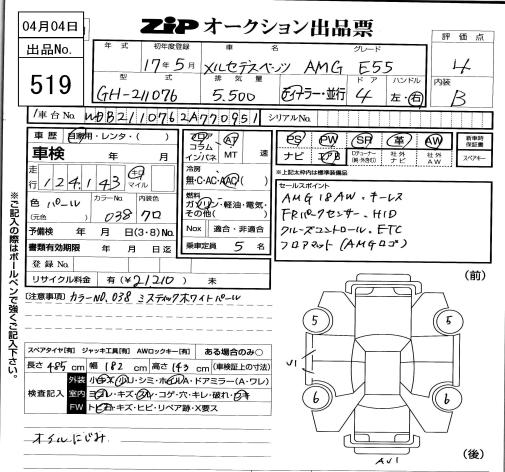 04月04日
出品No.
519
ZiPオークション出品票
評価点
4
内装
B
年式 初年度登録 車名 グレード
17年5月 メルセデスベンツ AMG E55
型式 排気量 ドア ハンドル
GH-211076 5.500 ディーラー・並行 4 左・右
車台No. WDB2110762A770951 シリアルNo.
車歴 自家用・レンタ・( )
車検 年 月
走行 124,143 キロ マイル
色 パール カラーNo. 038 内装色 クロ
(元色)
予備検 年 月 日 (3・8) No.
書類有効期限 年 月 日迄
登録No.
リサイクル料金 有 (¥21210) 未
フロア コラム インパネ
AT MT 速
冷房
無・C・AC・AAC
燃料
ガソリン・軽油・電気・その他( )
Nox 適合・非適合
乗車定員 5 名
PS PW SR 革 AW
ナビ エアB 社外ナビ 社外AW
新車時保証書
スペアキー
*上記太枠内は標準装備品
セールスポイント
AMG18AW、キーレス
FRパークセンサー、HID
クルーズコントロール、ETC
フロアマット(AMGロゴ)
[注意事項] カラーNO.038 ミスティックホワイトパール
スペアタイヤ[有] ジャッキ工具[有] AWロックキー[有] ある場合のみ○
長さ 485 cm 幅 182 cm 高さ 143 cm (車検証上の寸法)
検査記入
外装 小キズ・小U・シミ・ホイルA・ドアミラー(A・ワレ)
室内 ヨゴレ・キズ・スレ・コゲ・穴・キレ・破れ・
FW トビ石・キズ・ヒビ・リペア跡・X要ス
オイルにじみ
(前)
5 5
6 6
(後)
※ご記入の際はボールペンで強くご記入下さい。